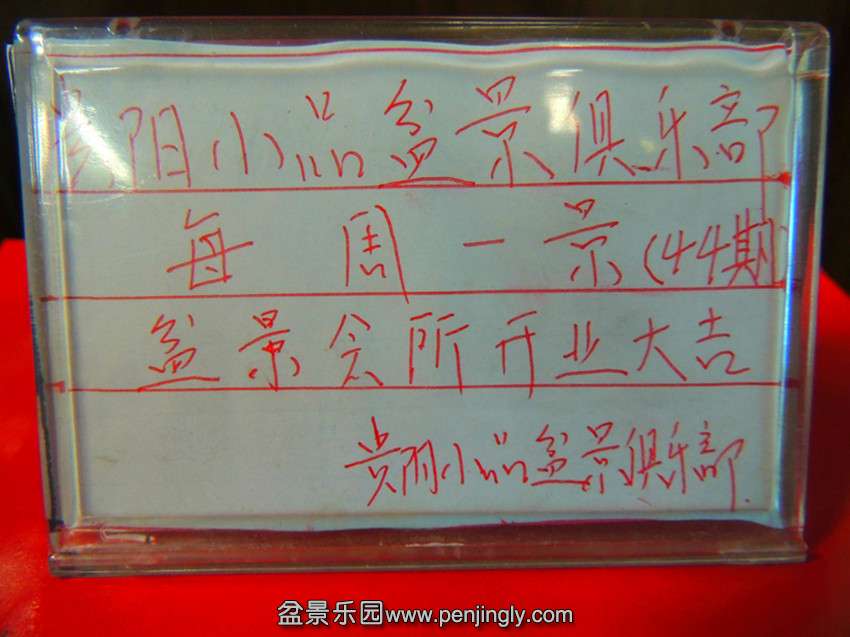 贵阳小品盆景俱乐部
每周一景(44期)
盆景会所开业大吉
贵阳小品盆景俱乐部
盆景乐园www.penjingly.com